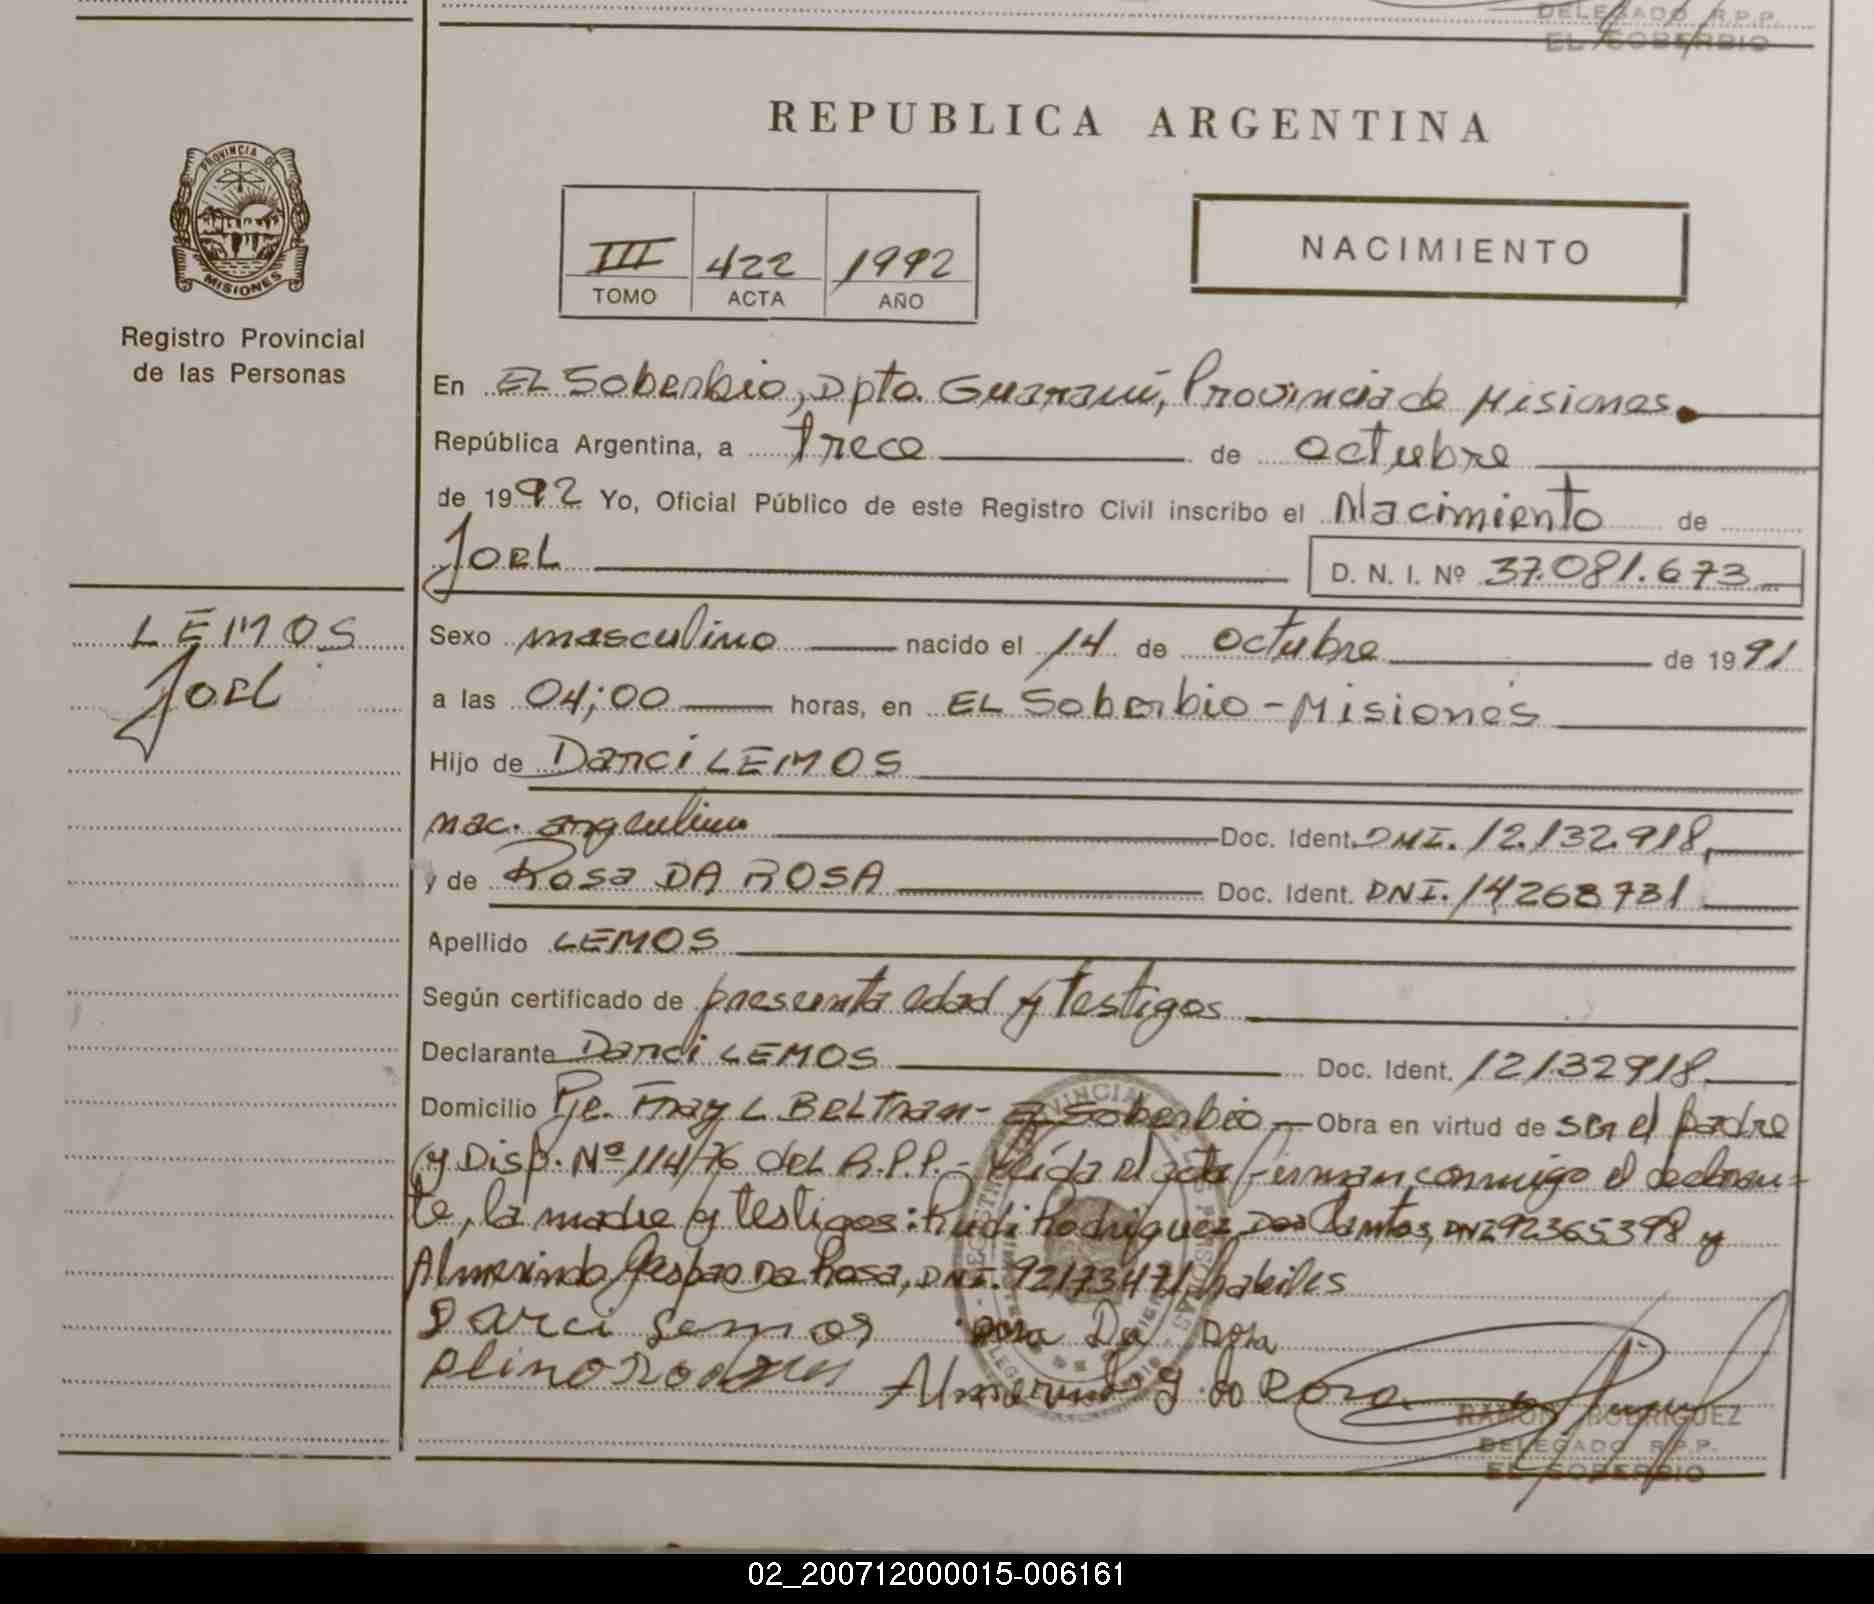 DELEGADO R.P.P.
EL SOBERBIO
REPUBLICA ARGENTINA
PROVINCIA DE
MISIONES
Registro Provincial
de las Personas
III 422 1992
TOMO ACTA AÑO
NACIMIENTO
En EL Soberbio, Dpto. Guaraní, Provincia de Misiones.
República Argentina, a trece de octubre
de 1992 Yo, Oficial Público de este Registro Civil inscribo el Nacimiento de
Joel D. N. I. Nº 37.081.673
LEMOS
Joel
Sexo masculino nacido el 14 de octubre de 1991
a las 04;00 horas, en EL Soberbio - Misiones
Hijo de Darci LEMOS
nac. argentino Doc. Ident. DNI. 12.132.918,
y de Rosa DA ROSA Doc. Ident. DNI. 14268731
Apellido LEMOS
Según certificado de presunta edad y testigos
Declarante Darci LEMOS Doc. Ident. 12132918
Domicilio Pje. Fray L BeLtran - EL Soberbio - Obra en virtud de ser el padre
y Disp. Nº 114/76 del R.P.P. - Leída el acta firman conmigo el declaran-
te, la madre y testigos: Rudi Rodriguez Dos Santos, DNI 92365398 y
Almerindo Gaspar Da Rosa, DNI. 92173471, habiles
Darci Lemos Rosa Da Rosa
Almerindo g. da Rosa
RAMON RODRIGUEZ
DELEGADO R.P.P.
EL SOBERBIO
02_200712000015-006161